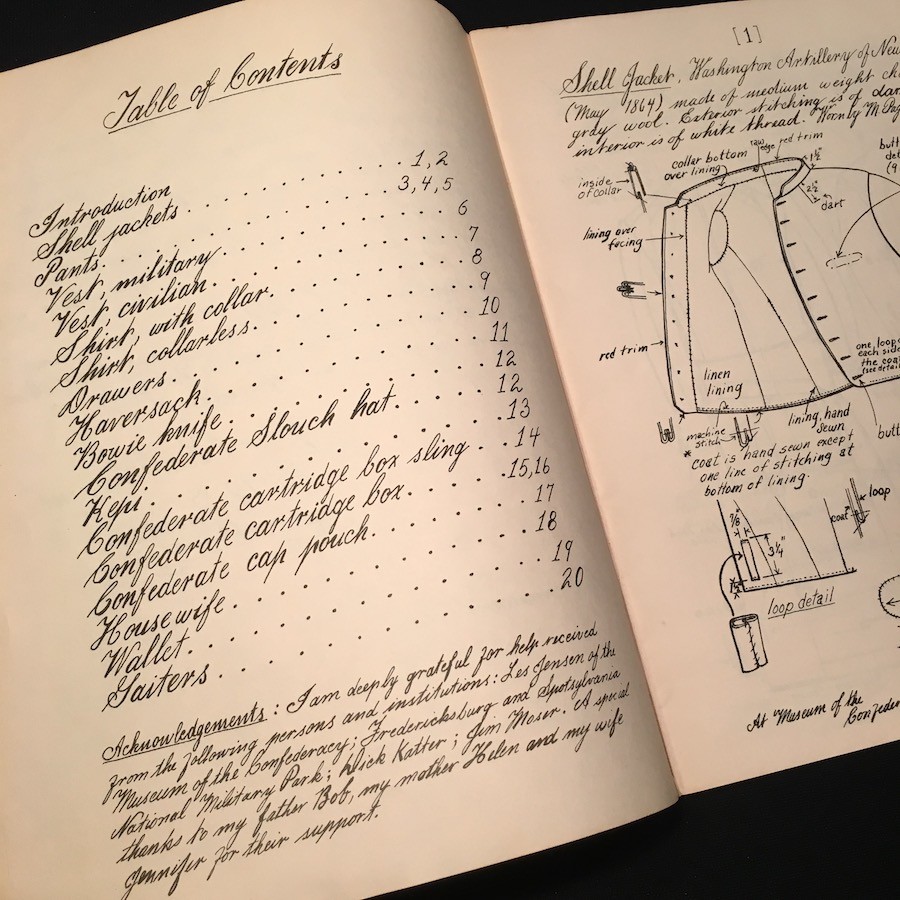 Table of Contents
Introduction
Shell jackets . . . . . . . . . . . . 1,2
Pants. . . . . . . . . . . . . . . 3,4,5
Vest, military. . . . . . . . . . . . 6
Vest, civilian. . . . . . . . . . . . 7
Shirt, with collar. . . . . . . . . . 8
Shirt, collarless. . . . . . . . . . 9
Drawers. . . . . . . . . . . . . . 10
Haversack. . . . . . . . . . . . . 11
Bowie knife . . . . . . . . . . . . 12
Confederate Slouch hat. . . . . 12
Kepi. . . . . . . . . . . . . . . . 13
Confederate cartridge box sling . . 14
Confederate cartridge box. . . . . 15,16
Confederate cap pouch. . . . . . . 17
Housewife . . . . . . . . . . . . . 18
Wallet. . . . . . . . . . . . . . . 19
Gaiters . . . . . . . . . . . . . . 20
Acknowledgements : I am deeply grateful for help received
from the following persons and institutions: Les Jensen of the
Museum of the Confederacy; Fredericksburg and Spotsylvania
National Military Park; Dick Katter ; Jim Moser. A special
thanks to my father Bob, my mother Helen and my wife
Jennifer for their support.
[1]
Shell Jacket, Washington Artillery of New
(May 1864) made of medium weight
gray wool. Exterior stitching is of
interior is of white thread. Worn by M.
inside
of collar
collar bottom
over lining
raw
edge
red trim
1½"
2½"
dart
lining over
facing
red trim
linen
lining
one loop
each side
the coat
(see detail
machine
stitch
lining, hand
sewn
* coat is hand sewn except
one line of stitching at
bottom of lining.
coat
loop
7/8"
3¼"
loop detail
At Museum of the